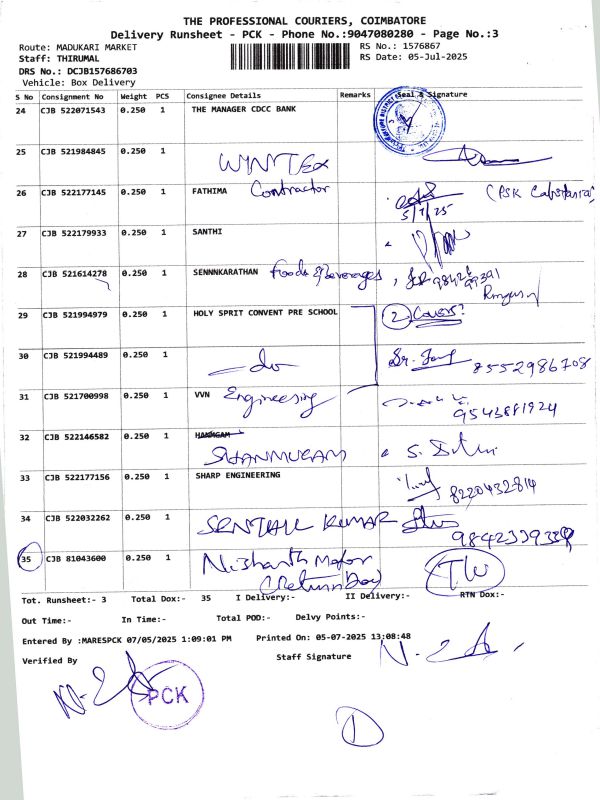 THE PROFESSIONAL COURIERS, COIMBATORE
Delivery Runsheet - PCK - Phone No.:9047080280 - Page No.:3
Route: MADUKARI MARKET RS No.: 1576867
Staff: THIRUMAL RS Date: 05-Jul-2025
DRS No.: DCJB157686703
Vehicle: Box Delivery
S No Consignment No Weight PCS Consignee Details Remarks Seal & Signature
24 CJB 522071543 0.250 1 THE MANAGER CDCC BANK
25 CJB 521984845 0.250 1 WINTEX
26 CJB 522177145 0.250 1 FATHIMA Contractor 5/7/25 (PSK
27 CJB 522179933 0.250 1 SANTHI
28 CJB 521614278 0.250 1 SENNNKARATHAN Foods & Beverages,
29 CJB 521994979 0.250 1 HOLY SPRIT CONVENT PRE SCHOOL 2 Covers
30 CJB 521994489 0.250 1 do 8552986708
31 CJB 521700998 0.250 1 VVN Engineering 9543881924
32 CJB 522146582 0.250 1 SHANMUGAM
33 CJB 522177156 0.250 1 SHARP ENGINEERING 8220432814
34 CJB 522032262 0.250 1 SENTHIL KUMAR
35 CJB 81043600 0.250 1 Nishanth Motor
(Return Doc)
Tot. Runsheet:- 3 Total Dox:- 35 I Delivery:- II Delivery:- RTN Dox:-
Out Time:- In Time:- Total POD:- Delvy Points:-
Entered By :MARESPCK 07/05/2025 1:09:01 PM Printed On: 05-07-2025 13:08:48
Verified By Staff Signature
PCK